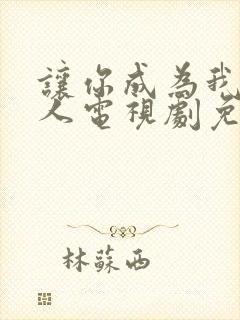 讓你成為我
人電視劇免
林蘇西